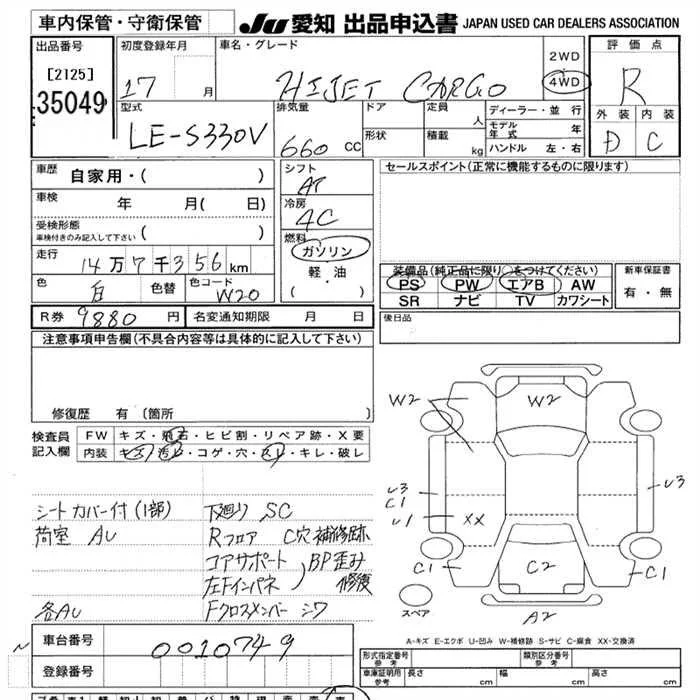 車内保管・守衛保管
JU 愛知 出品申込書 JAPAN USED CAR DEALERS ASSOCIATION
出品番号
[2125]
35049
初度登録年月
17 月
車名・グレード
HIJET CARGO
2WD
4WD
評価点
R
外装 内装
D C
型式
LE-S330V
排気量
660 CC
ドア
形状
定員 人
積載 kg
ディーラー・並行
モデル年式 年
ハンドル 左・右
車歴 自家用・( )
車検 年 月( 日)
受検形態
車検付きのみ記入して下さい ( )
走行
14万7千356km
色 白 色替 色コード W20
シフト
AT
冷房
AC
燃料
ガソリン
軽・油
( )
セールスポイント(正常に機能するものに限ります)
装備品(純正品に限り○をつけてください)
PS PW エアB AW
SR ナビ TV カワシート
新車保証書
有・無
R券 9880 円 名変通知期限 月 日
後日品
注意事項申告欄(不具合内容等は具体的に記入して下さい)
修復歴 有〔箇所 〕
検査員記入欄
FW キズ・飛石・ヒビ割・リペア跡・X要
内装 キズ・汚レ・コゲ・穴・スレ・キレ・破レ
シートカバー付(1部) 下廻り SC
荷室 AU Rフロア C穴補修跡
コアサポート BP歪み
左Fインパネ 修復
各AU Fクロスメンバー シワ
W2 W2
U3
C1
U1
XX
U3
C1 C2 C1
A2
スペア
A-キズ E-エクボ U-凹み W-補修跡 S-サビ C-腐食 XX-交換済
車台番号 0010749
登録番号
形式指定番号 参考
類別区分番号 参考
車庫証明用 参考 長さ cm 幅 cm 高さ cm